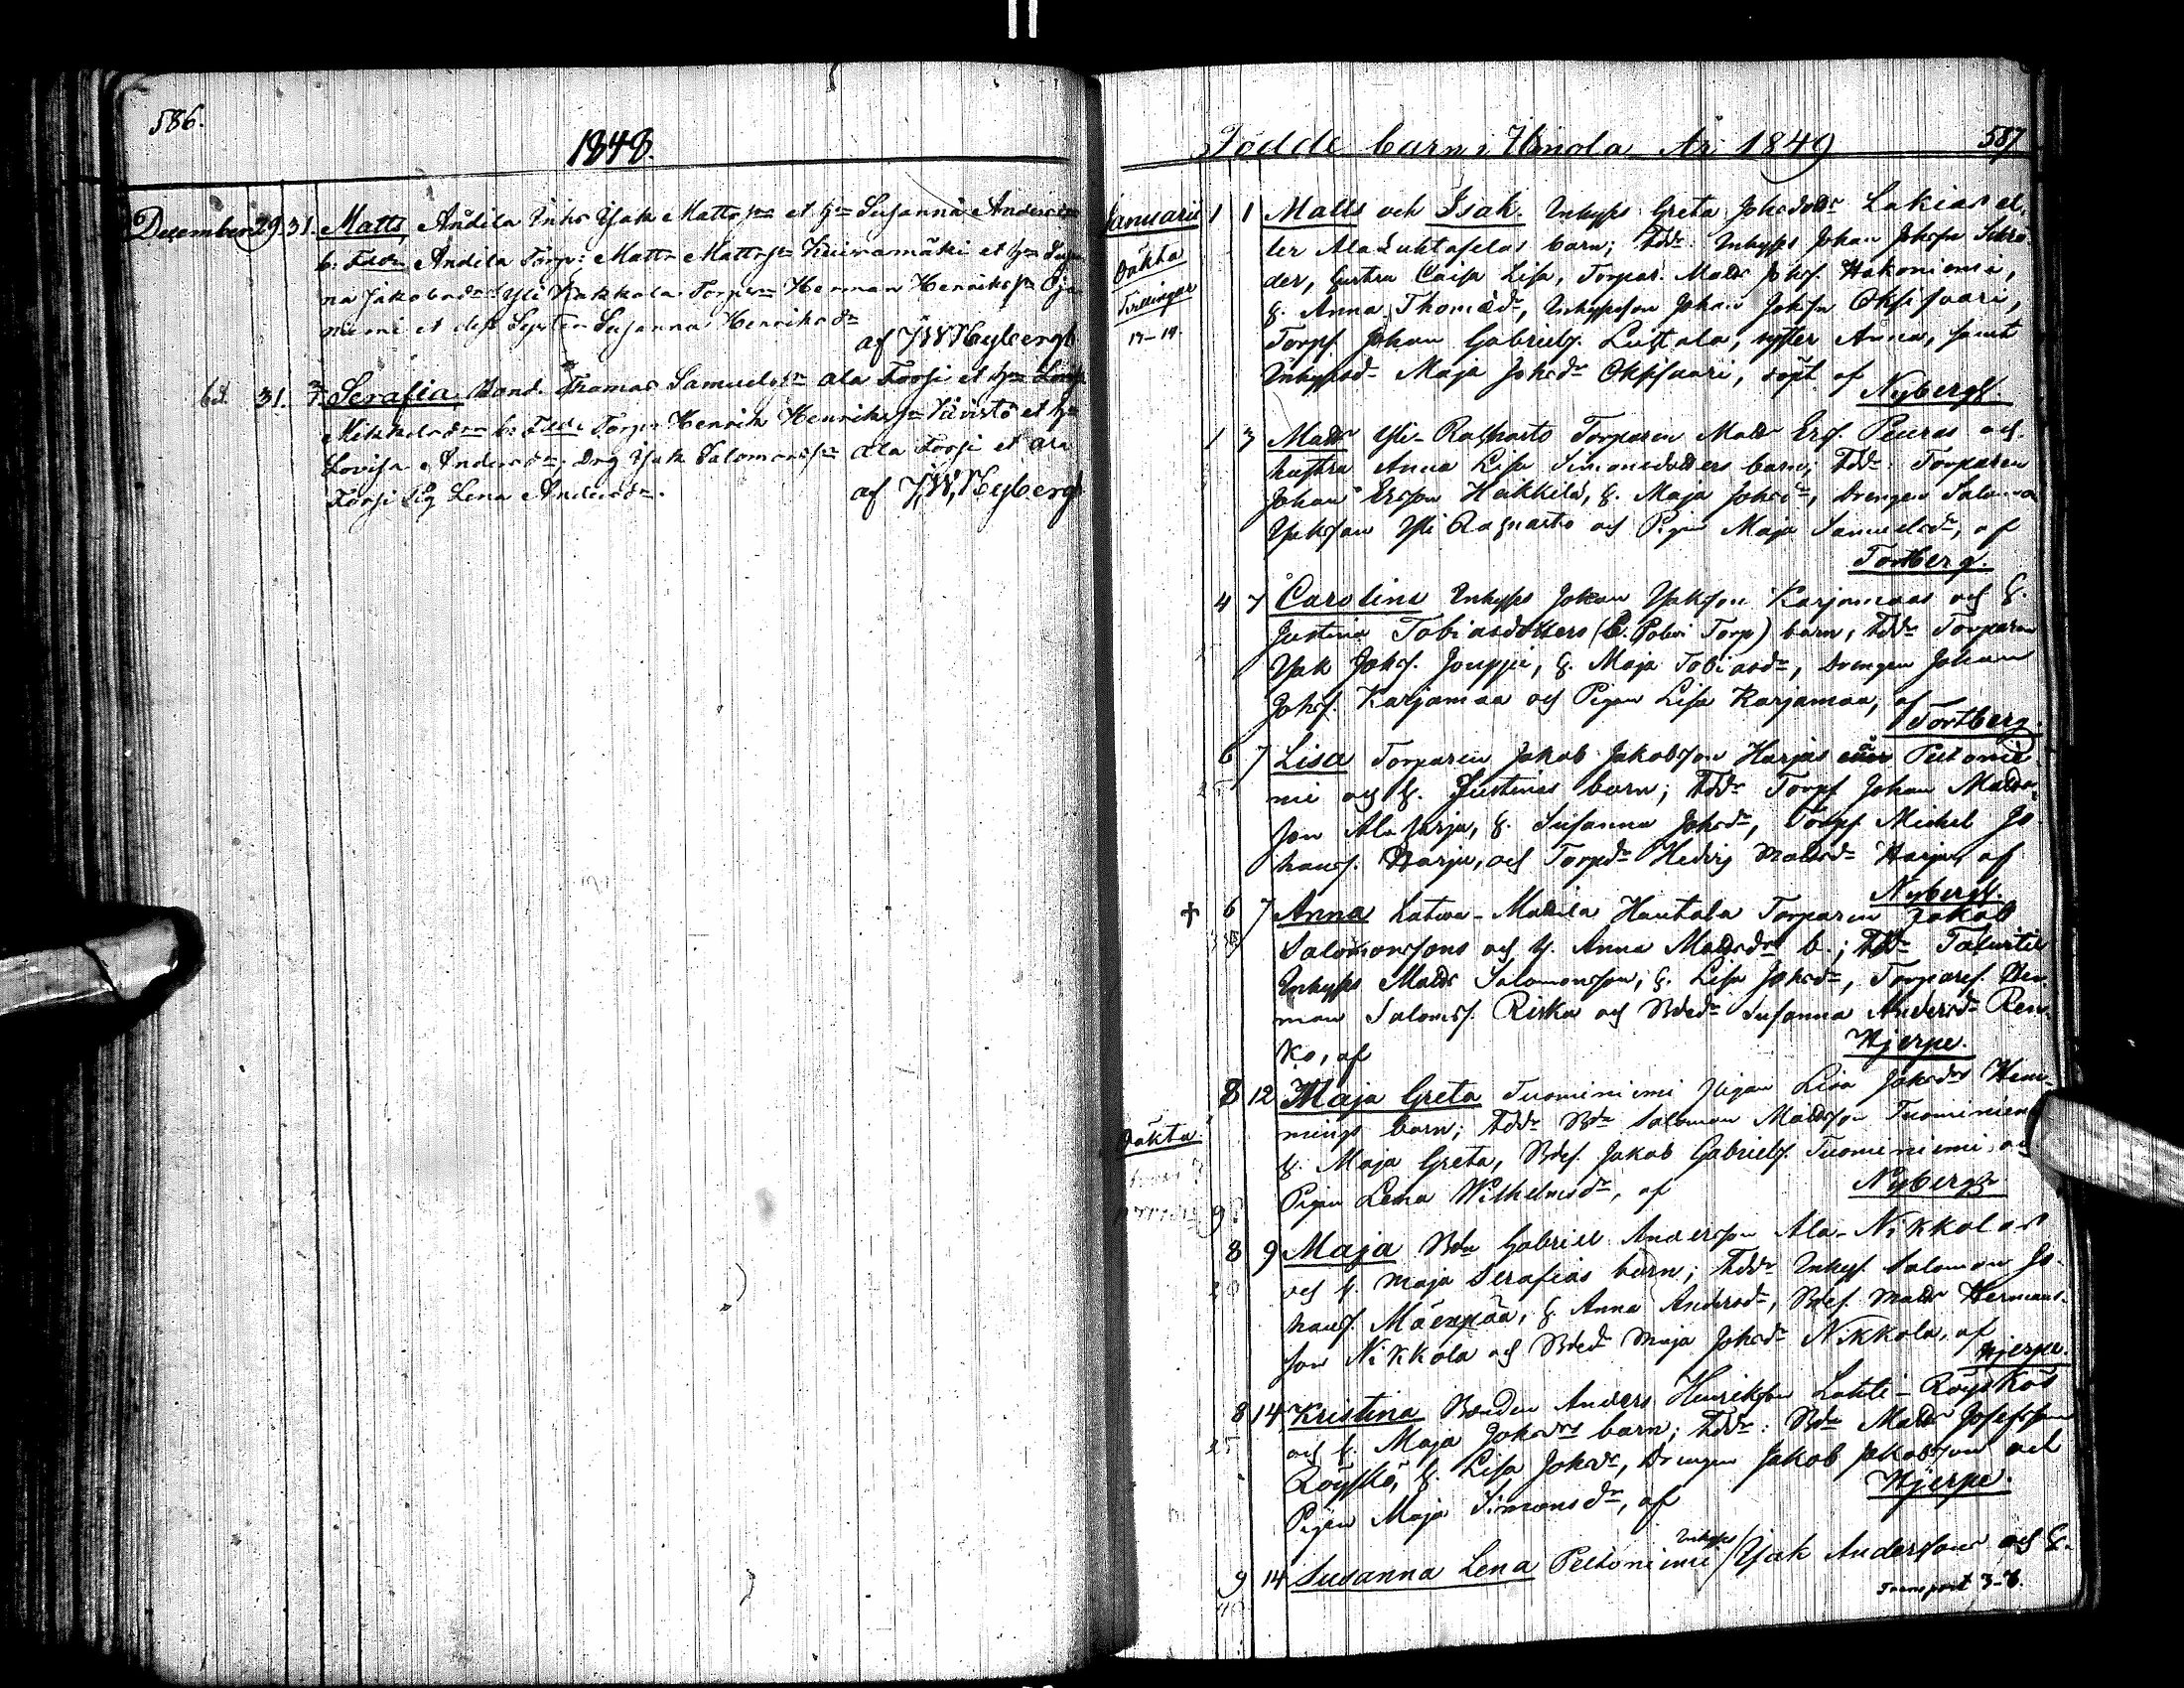 586.
1848.
December 29. 31. Matts, Andila Inhs Isak Mattsson et hu Susanna Anders
b: Fddr Andila Torp: Matts Mattsson et hu
na Jakobsdr Yli Kakkola Torpson Herman Henriksson Oja
niemi et dess Syster Susanna Henriksdr
af J W Heyberg
31. Serafia, Bond. Thomas Samuelsson Ala Torsi et hu
Mikkelsdr b: Fddr Torp Henrik Henriksson et hu
Lovisa Andersdr, Drg Isak Salomonsson Ala Torsi et
Torsi Pig Lena Andersdr.
af J, W, Heyberg
Födde barn i Ilmola År 1849
587
Januarii 1 1 Matts och Isak. Inhyss Greta Johsdotr Lakias el.
Oäkta
Tvillingar
ler Ala Luhtaselas barn; Fddr Inhyss Johan Johsson Schrö
der, hustru Caisa Lisa, Torpar. Matts Johss. Hakoniemi,
h. Anna Thomædr, Inhysson Johan Johsson Oksisuari,
Torps. Johan Gabriels. Luhtala, syster Anna, samt
Inhysd. Maja Johsdr Oksisuari, döpt af
Nyberg.
1 3 Matts Yli-Rahnasto Torparen Matts Ers. Peuras och
hustru Anna Lisa Simonsdotters barn; Fddr Torparen
Johan Ersson Haikkila, h. Maja Johsdr, Drengen Salomon
Isaksson Yli Rahnasto och Pigan Maja Samuelsdr, af
Tortberg.
4 7 Carolina Inhyss Johan Isaksson Karjamaas och h.
Justina Tobiasdotters (B. Torp) barn, Fddr Torparen
Isak Johss. Jouppi, h. Maja Tobiasdr, Drengen Johan
Johss. Karjamaa och Pigan Lisa Karjamaa, af
Tortberg.
6 7 Lisa Torparen Jakob Jakobsson Harjas Peltonie
mi och h. Justinas barn; Fddr Torps Johan Matts
son Ala Harja, h. Susanna Johsdr, Torps. Michel Jo
hans. Harju, och Torpdr Hedvig Mattsdr Harju, af
Nyberg.
† 6 7 Anna Latva-Mattila Hautala Torparen Jakob
Salomonssons och h. Anna Mattsdrs b.; Fddr
Inhyss Matts Salomonsson, h. Lisa Johsdr, Torpares. Her
man Saloms. Riska och Bdedr Susanna Andersdr Ren
ko, af
Hjerpe.
8 12 Maja Greta Tuominiemi pigan Lisa Johsdrs Hem
Oäkta
mings barn; Fddr Bdn Salomon Mattsson Tuominiemi
h. Maja Greta, Bdes. Jakob Gabriels. Tuominiemi, och
Pigan Lena Wilhelmsdr, af
Nyberg
8 9 Maja Bdn Gabriel Andersson Ala-Nikkolas
och h. Maja Serafias barn; Fddr Inhys. Salomon Jo
hans. Mäenpää, h. Anna Andersdr, Bdes. Matts Hermans
son Nikkola och Bdedr Maja Johsdr Nikkola, af
Hjerpe.
8 14 Kristina Bonden Anders Henriksson Lahti-Röyskös
och h. Maja Johsdrs barn; Fddr: Bdn Matts Josefsson
Röyskö, h. Lisa Johsdr, Drengen Jakob Jakobsson och
Pigan Maja Simonsdr, af
Hjerpe.
9 14 Susanna Lena Peltoniemi Inhyss Isak Anderssons och h.
Transport 3-8.